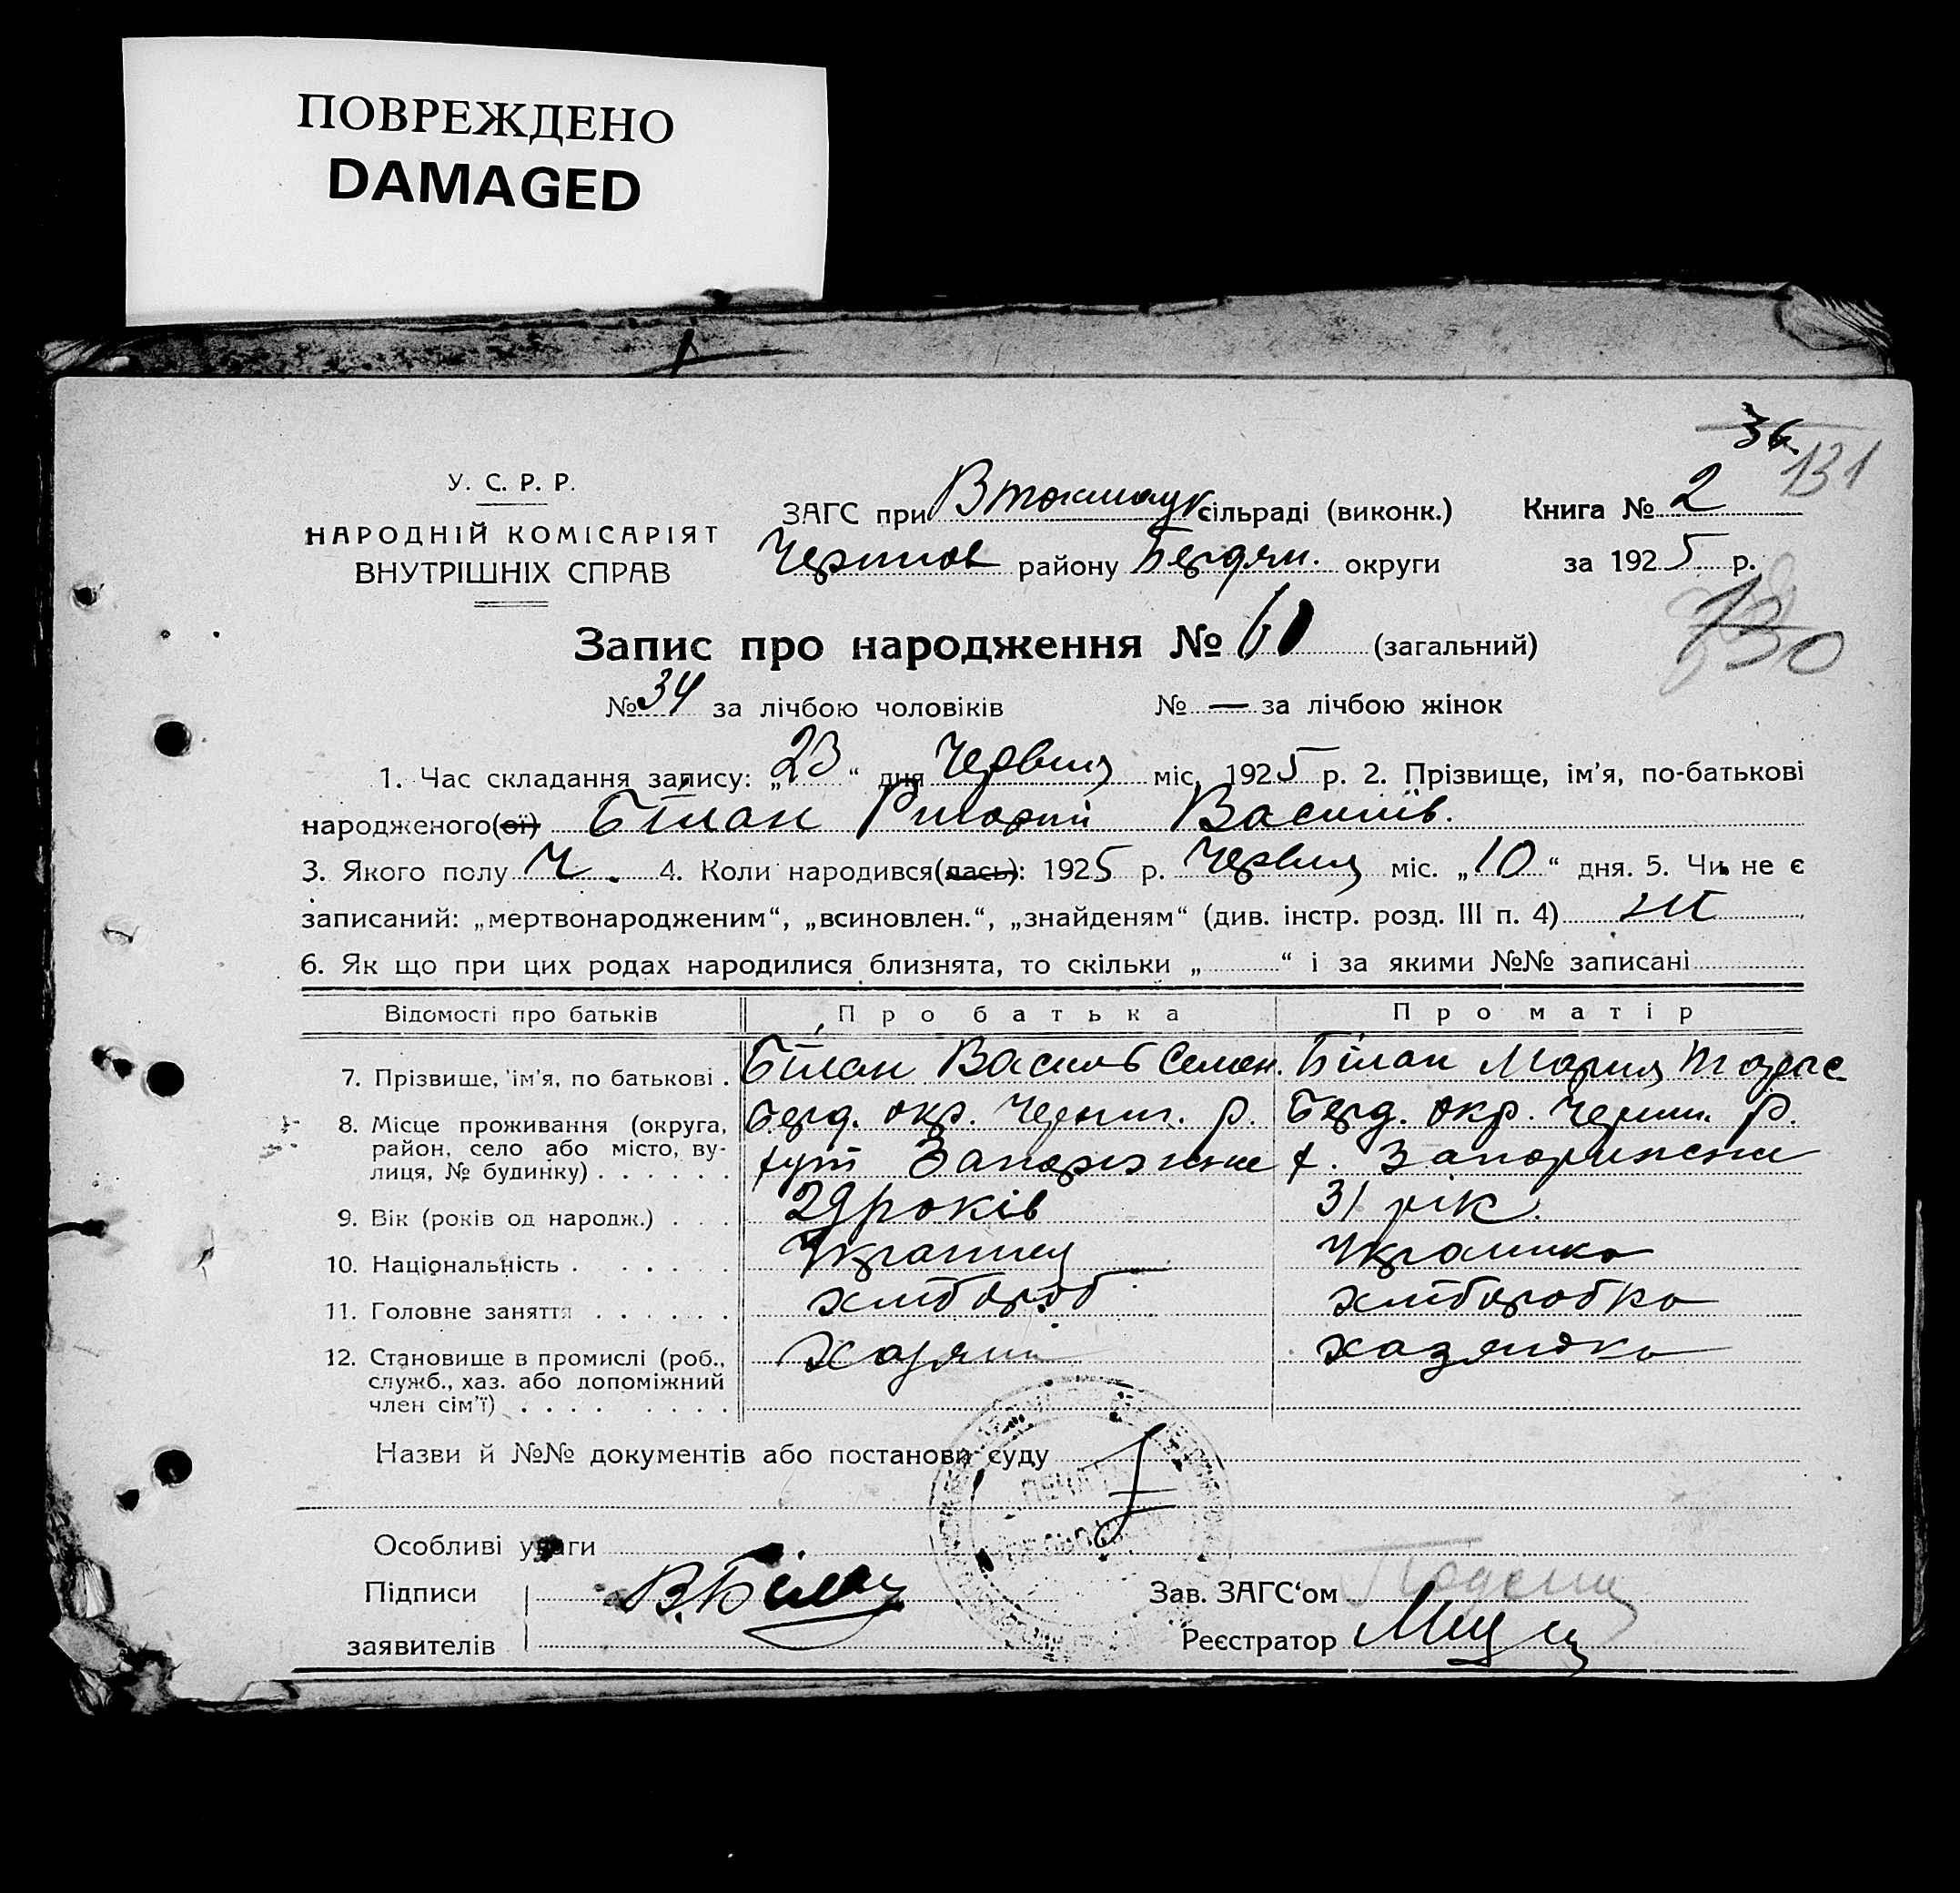 ПОВРЕЖДЕНО
DAMAGED
36
131
У. С. Р. Р.
НАРОДНІЙ КОМІСАРІЯТ
ВНУТРІШНІХ СПРАВ
ЗАГС при Втокмацк сільраді (виконк.)
Книга № 2
район у Бердян. округи
за 1925 р.
130
Запис про народження № 60 (загальний)
№ 34 за лічбою чоловіків № — за лічбою жінок
1. Час складання запису: „23“ дня Червця міс. 1925 р. 2. Прізвище, ім'я, по-батькові
народженого(ої) Білан Василів.
3. Якого полу Ч. 4. Коли народився(лась): 1925 р. Червця міс. „10“ дня. 5. Чи не є
записаний: „мертвонародженим“, „всиновлен.“, „знайденям“ (див. інстр. розд. III п. 4) ні
6. Як що при цих родах народилися близнята, то скільки „ “ і за якими №№ записані
Відомості про батьків Про батька Про матір
7. Прізвище, ім'я, по батькові . Білан Василь Семен. Білан Мария
8. Місце проживання (округа, район, село або місто, вулиця, № будинку) Берд. окр. Черниг. р. Берд. окр. Черниг. р.
9. Вік (років од народж.) . . . 29 років 31 рік.
10. Національність . . . . . . Українец Українка
11. Головне заняття . . . . . . хлібороб хлібаробка
12. Становище в промислі (роб., служб., хаз. або допоміжний член сім'ї) Хазяїн хазяйка
Назви й №№ документів або постанови суду
Особливі уваги
Підписи В. Білан Зав. ЗАГС‘ом
заявителів Реєстратор